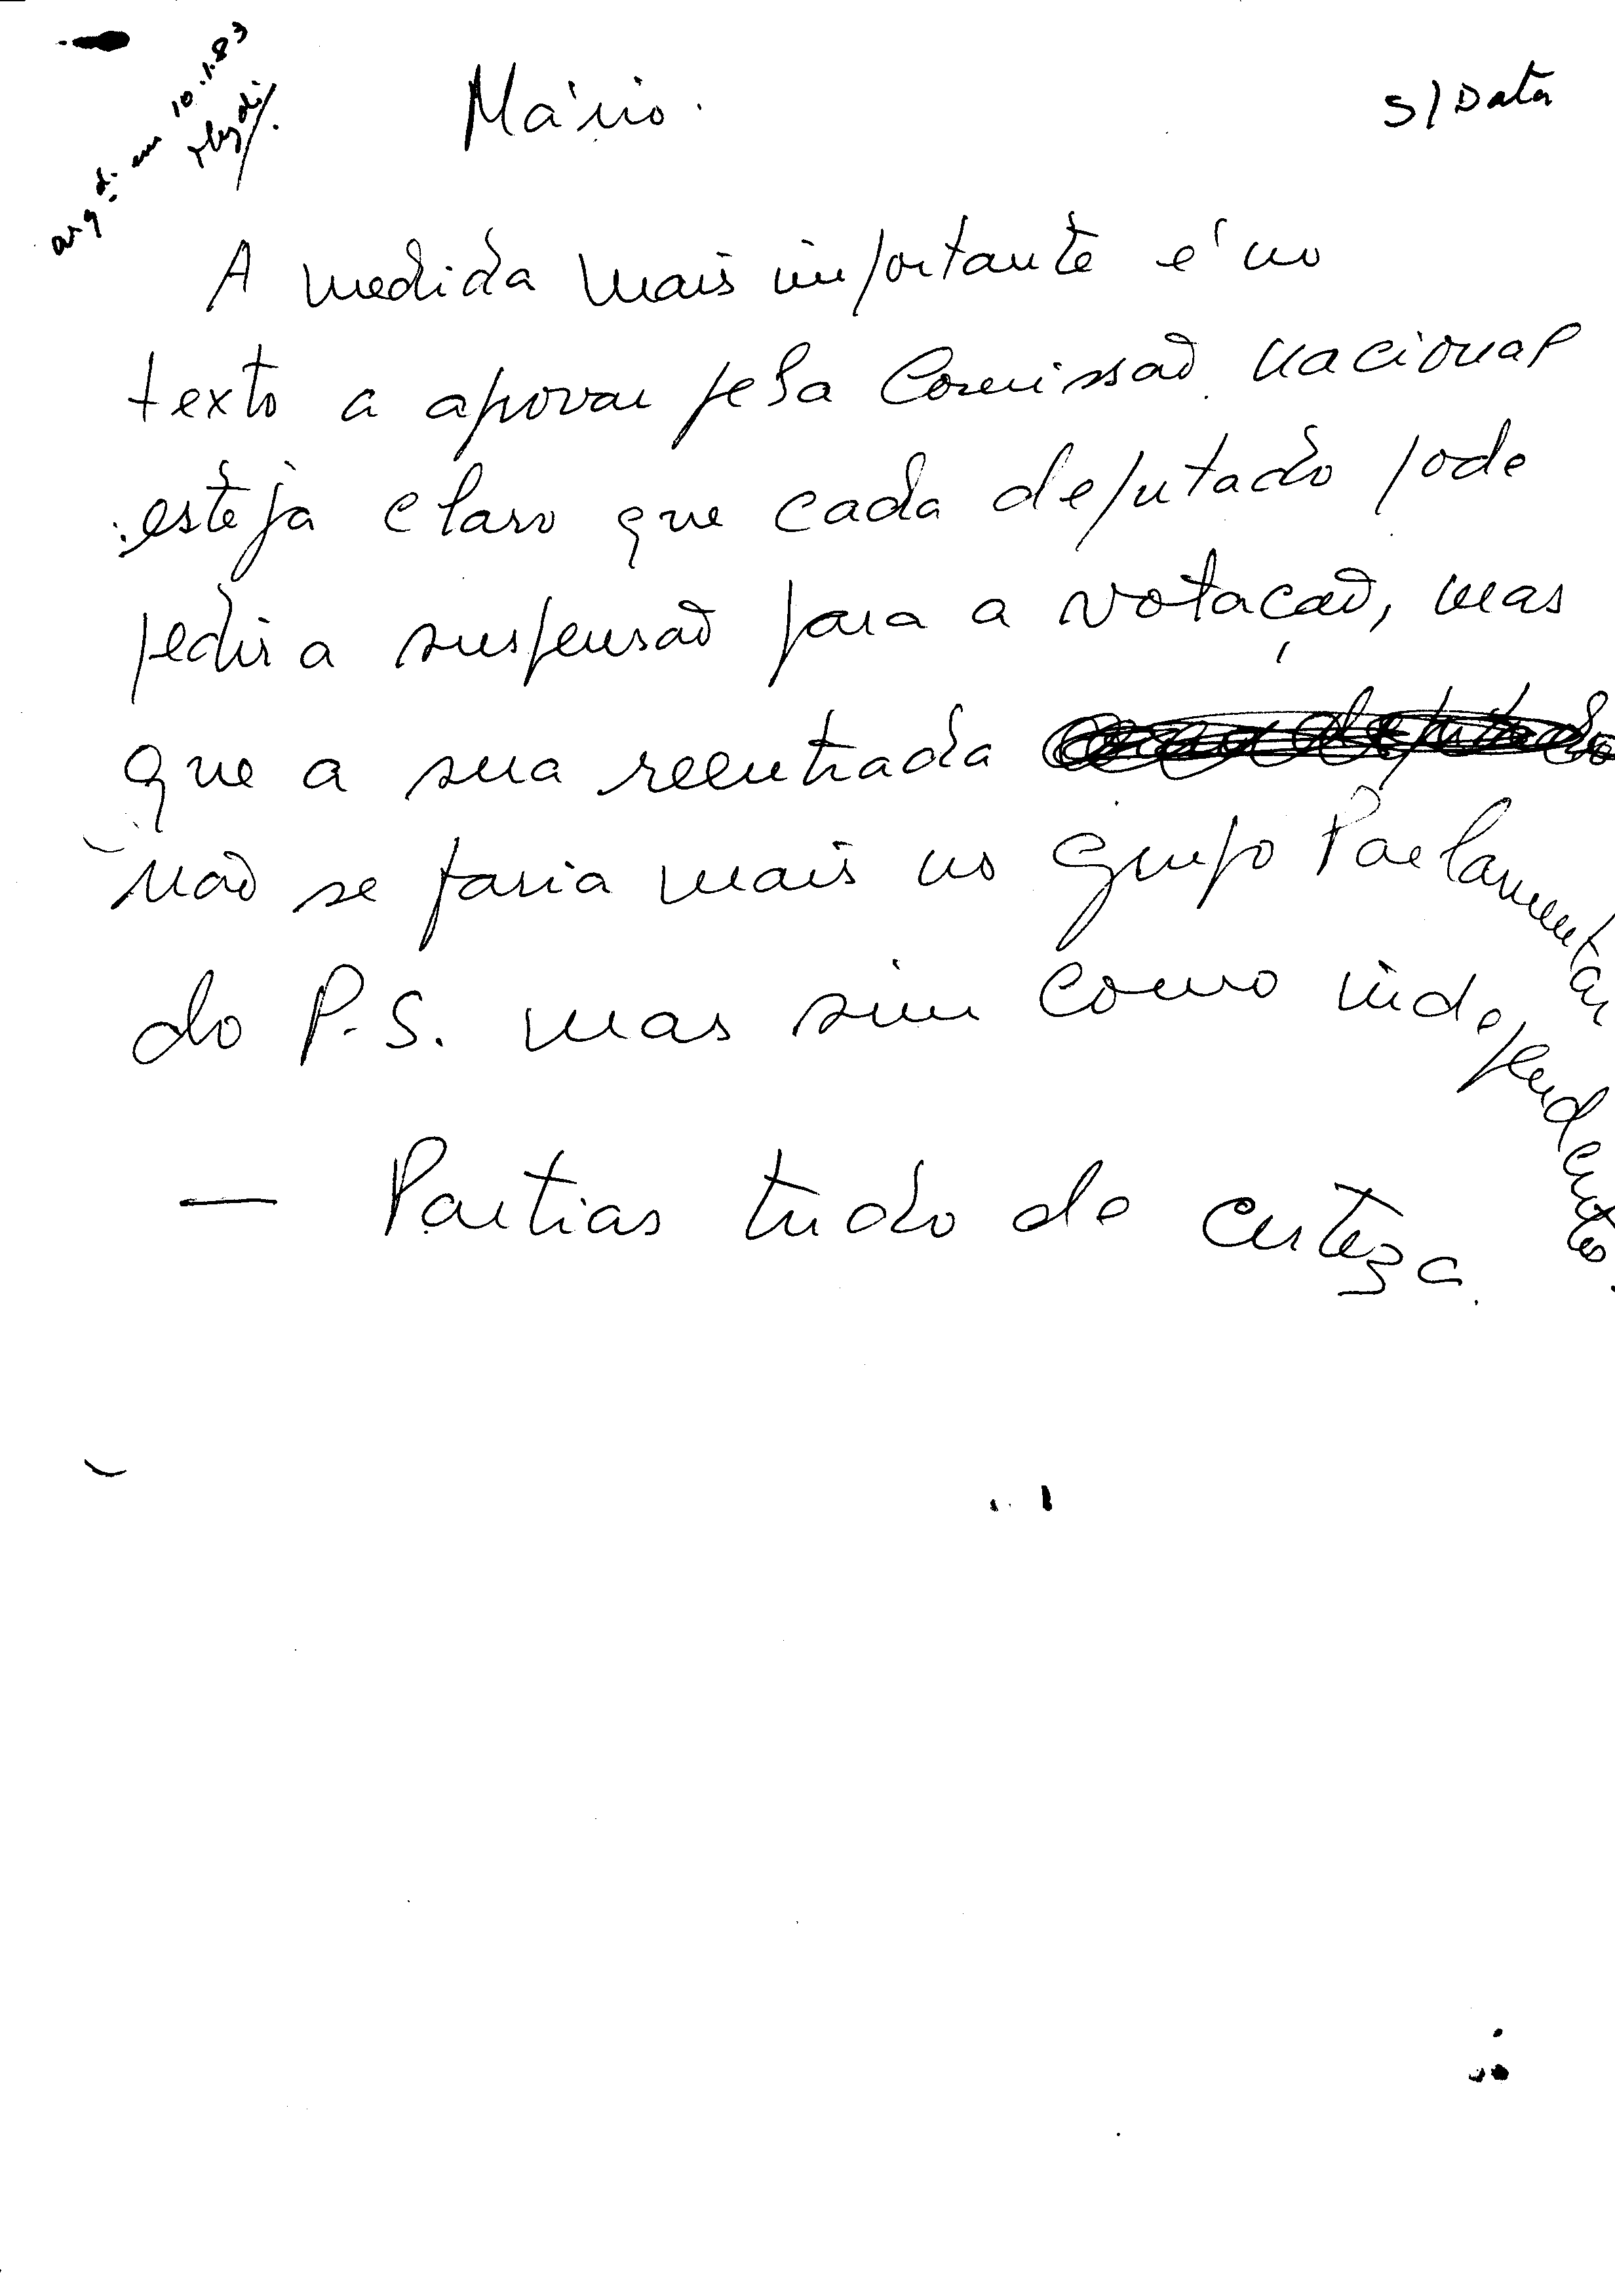 arq. di. em 10.1.83
Mário.
S/Data
A medida mais importante é no
texto a aprovar pela Comissão nacional
esteja claro que cada deputado pode
pedir a suspensão para a votação, mas
que a sua reentrada
não se faria mais no grupo Parlamentar
do P.S. mas sim como independentes.
— Partias tudo de certeza.